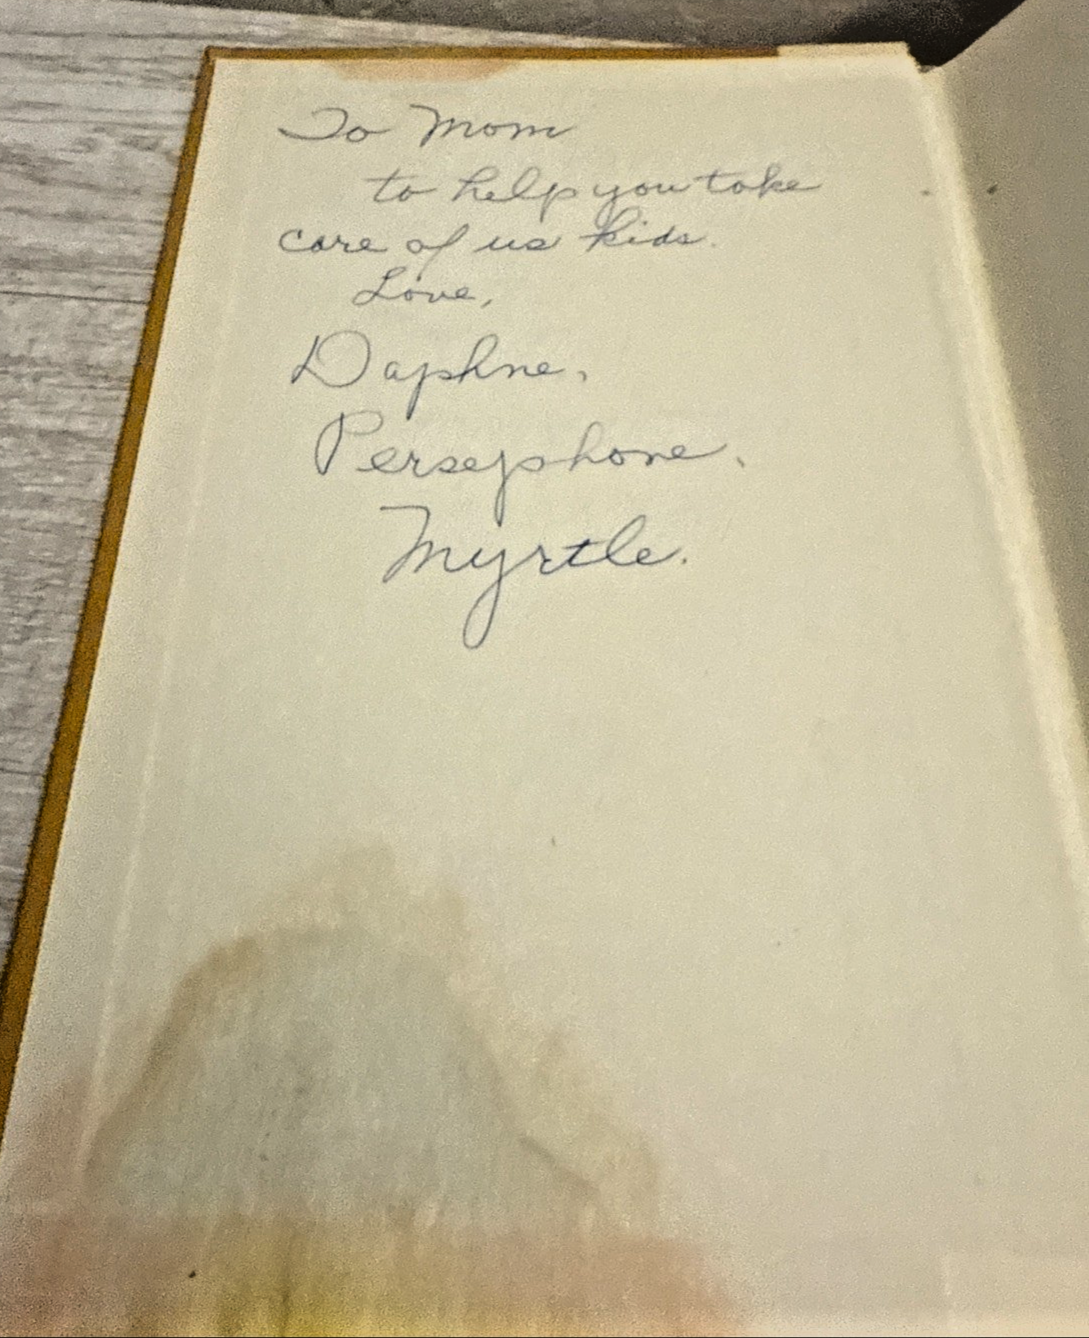 To Mom
to help you take
care of us kids.
Love,
Daphne,
Persephone,
Myrtle.